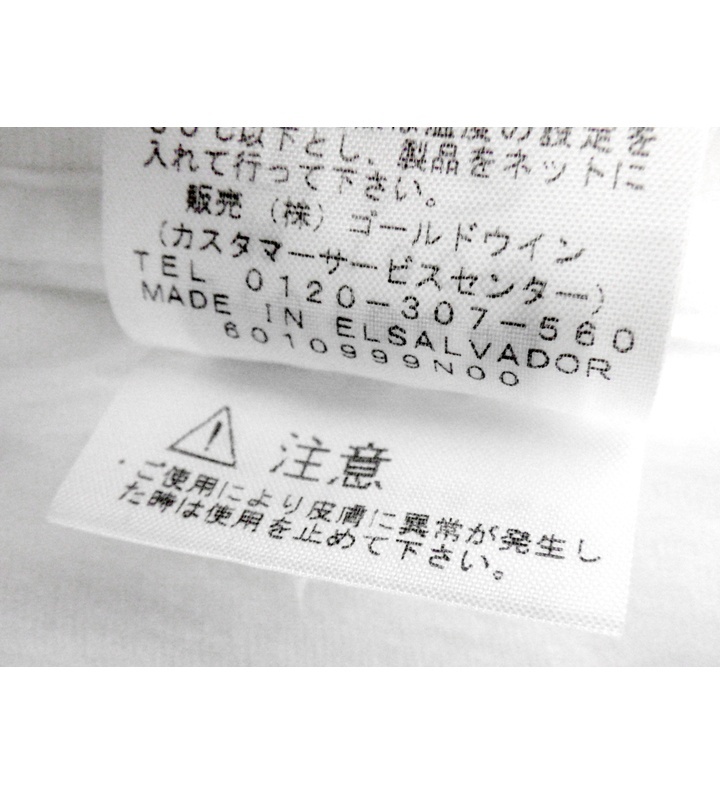 は温度の設定を
以下とし、製品をネットに
入れて行って下さい。
販売 (株) ゴールドウイン
(カスタマーサービスセンター)
TEL 0120-307-560
MADE IN ELSALVADOR
6010999N00
注意
・ご使用により皮膚に異常が発生し
た時は使用を止めて下さい。